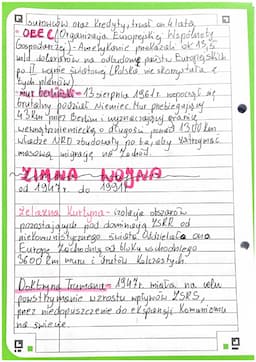 surowców oraz kredyty, trwał on 4 lata
- OBEC (Organizacja Europejskiej Współpracy
Gospodarczej) - Amerykanie przekazali ok 13,5
mld dolarów na odbudowę państw Europejskich
po II wojnie światowej (Polska nie skorzystała z
tych planów)
- Mur berliński - 13 sierpnia 1961r. rozpoczął się
brutalny podział Niemiec. Mur przebiegający
43 km przez Berlin i wyznaczający granicę
wewnątrzniemiecką o długości ponad 1300 km
władze NRD zbudowały po to, aby zatrzymać
masową migrację na Zachód.
ZIMNA WOJNA
od 1947r. do 1991r.
Żelazna Kurtyna - izolacja obszarów
pozostających pod dominacją ZSRR od
niekomunistycznego świata. Oddzielała ona
Europę Zachodnią od bloku wschodniego
3600 km muru i drutów kolczastych
Doktryna Trumana - 1947r. miała na celu
powstrzymanie wzrostu wpływów ZSRS,
przez niedopuszczenie do ekspansji Komunizmu
na świecie.